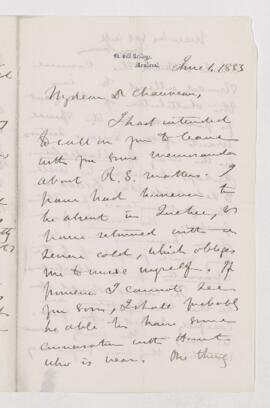 McGill College,
Montreal.
June 1, 1883
My dear Dr Chauveau,
I had intended
to call on you to leave
with you some memoranda
about R. S. matters. I
have had however to
be absent in Quebec, &
have returned with a
severe cold, which obliges
me to nurse myself. If
I cannot see
you soon, I shall probably
be able to have some
conversation with
who is near. One thing